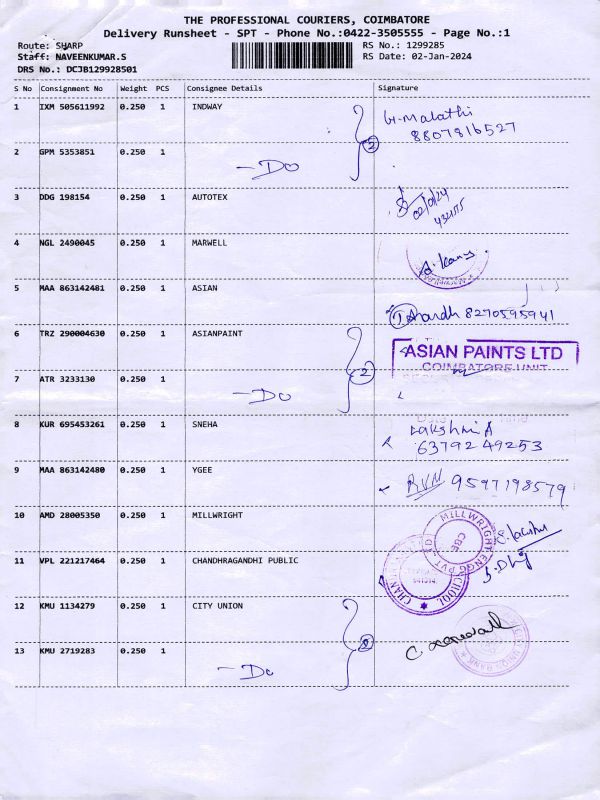 THE PROFESSIONAL COURIERS, COIMBATORE
Delivery Runsheet - SPT - Phone No.:0422-3505555 - Page No.:1
Route: SHARP
RS No.: 1299285
Staff: NAVEENKUMAR.S
RS Date: 02-Jan-2024
DRS No.: DCJB129928501
S No Consignment No Weight PCS Consignee Details Signature
1 IXM 505611992 0.250 1 INDWAY
G. Malathi
8807816527
2 GPM 5353851 0.250 1 - Do 2
3 DDG 198154 0.250 1 AUTOTEX
02/01/24
4 NGL 2490045 0.250 1 MARWELL
5 MAA 863142481 0.250 1 ASIAN
8270595941
6 TRZ 290004630 0.250 1 ASIANPAINT
ASIAN PAINTS LTD
COIMBATORE UNIT
7 ATR 3233130 0.250 1 - Do 2
8 KUR 695453261 0.250 1 SNEHA
Lakshmi A
63792 49253
9 MAA 863142480 0.250 1 YGEE
RVN 9597198579
10 AMD 28005350 0.250 1 MILLWRIGHT
MILLWRIGHT ENGG PVT LTD
CBE
11 VPL 221217464 0.250 1 CHANDHRAGANDHI PUBLIC
SCHOOL
12 KMU 1134279 0.250 1 CITY UNION
UNION BANK
13 KMU 2719283 0.250 1 - Do